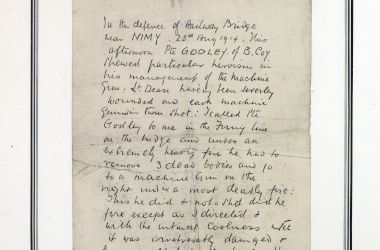 In the defence of Railway Bridge
near NIMY. 23rd Aug 1914. This
afternoon Pte GODLEY of B. Coy
shewed particular heroism in
his management of the Machine
Gun; Lt Dease having been severely
wounded and each machine
Gunner in turn shot. I called Pte
Godley to me in the Firing line
on the bridge and under an
extremely heavy fire he had to
remove 3 dead bodies and go
to a machine Gun on the
right under a most deadly fire:
This he did & not a shot did he
fire except as I directed &
with the utmost coolness until
it was irreparably damaged